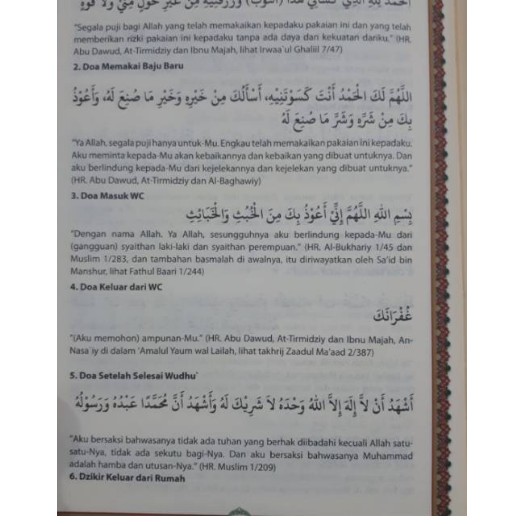 الْحَمْدُ لِلَّهِ الَّذِي كَسَانِي هَذَا (الثَّوْبَ) وَرَزَقَنِيْهِ مِنْ غَيْرِ حَوْلٍ مِنِّيْ وَلاَ قُوَّةٍ
"Segala puji bagi Allah yang telah memakaikan kepadaku pakaian ini dan yang telah
memberikan rizki pakaian ini kepadaku tanpa ada daya dari kekuatan dariku." (HR.
Abu Dawud, At-Tirmidziy dan Ibnu Majah, lihat Irwaa`ul Ghaliil 7/47)
2. Doa Memakai Baju Baru
اَللَّهُمَّ لَكَ الْحَمْدُ أَنْتَ كَسَوْتَنِيْهِ، أَسْأَلُكَ مِنْ خَيْرِهِ وَخَيْرِ مَا صُنِعَ لَهُ، وَأَعُوْذُ
بِكَ مِنْ شَرِّهِ وَشَرِّ مَا صُنِعَ لَهُ
"Ya Allah, segala puji hanya untuk-Mu. Engkau telah memakaikan pakaian ini kepadaku.
Aku meminta kepada-Mu akan kebaikannya dan kebaikan yang dibuat untuknya. Dan
aku berlindung kepada-Mu dari kejelekannya dan kejelekan yang dibuat untuknya."
(HR. Abu Dawud, At-Tirmidziy dan Al-Baghawiy)
3. Doa Masuk WC
بِسْمِ اللهِ اللَّهُمَّ إِنِّيْ أَعُوْذُ بِكَ مِنَ الْخُبُثِ وَالْخَبَائِثِ
"Dengan nama Allah. Ya Allah, sesungguhnya aku berlindung kepada-Mu dari
(gangguan) syaithan laki-laki dan syaithan perempuan." (HR. Al-Bukhariy 1/45 dan
Muslim 1/283, dan tambahan basmalah di awalnya, itu diriwayatkan oleh Sa'id bin
Manshur, lihat Fathul Baari 1/244)
4. Doa Keluar dari WC
غُفْرَانَكَ
"(Aku memohon) ampunan-Mu." (HR. Abu Dawud, At-Tirmidziy dan Ibnu Majah, An-
Nasa`iy di dalam 'Amalul Yaum wal Lailah, lihat takhrij Zaadul Ma'aad 2/387)
5. Doa Setelah Selesai Wudhu`
أَشْهَدُ أَنْ لاَ إِلَهَ إِلاَّ اللهُ وَحْدَهُ لاَ شَرِيْكَ لَهُ وَأَشْهَدُ أَنَّ مُحَمَّدًا عَبْدُهُ وَرَسُوْلُهُ
"Aku bersaksi bahwasanya tidak ada tuhan yang berhak diibadahi kecuali Allah satu-
satu-Nya, tidak ada sekutu bagi-Nya. Dan aku bersaksi bahwasanya Muhammad
adalah hamba dan utusan-Nya." (HR. Muslim 1/209)
6. Dzikir Keluar dari Rumah